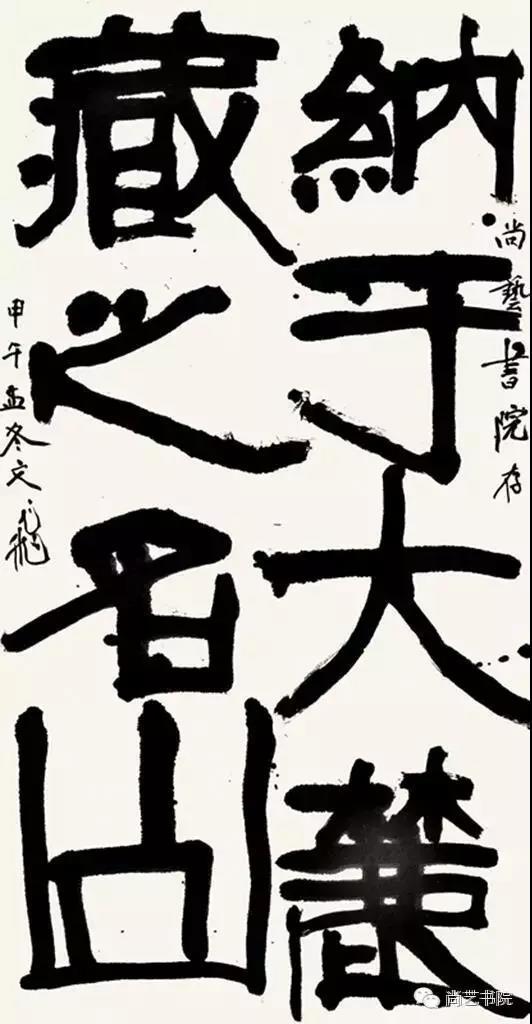 尚藝書院存
納于大麓
藏之名山
甲午孟冬文飛
尚艺书院